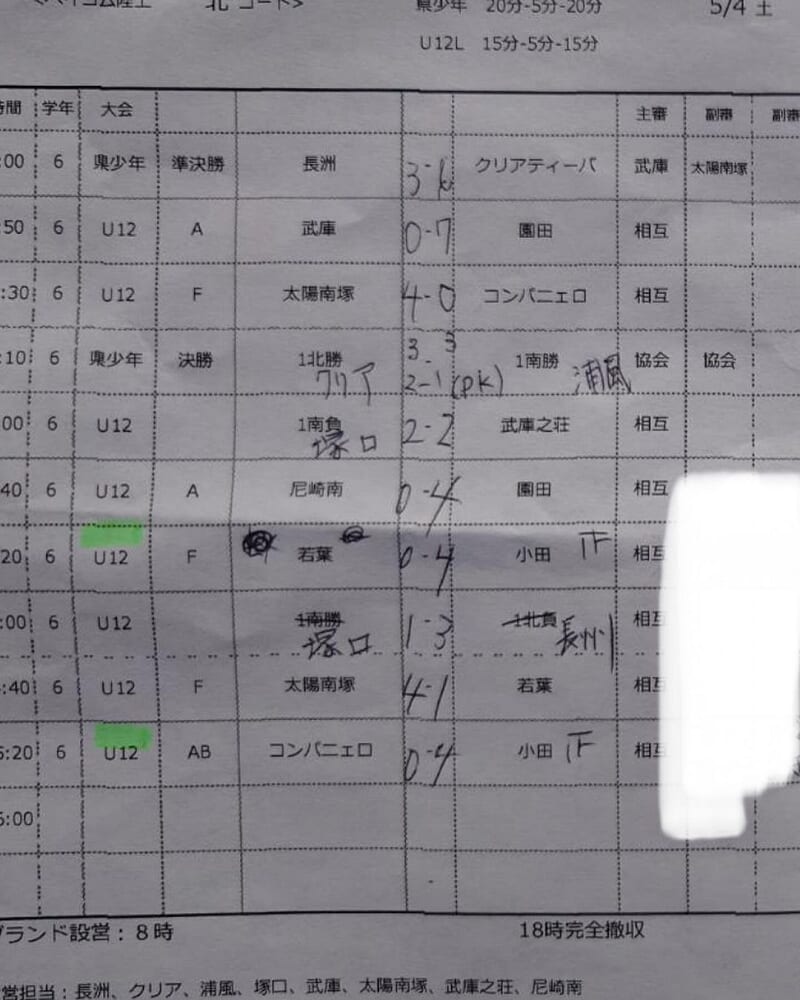 北 コート> 県少年 20分-5分-20分 5/4 土
U12L 15分-5分-15分
時間 学年 大会 主審 副審 副審
:00 6 県少年 準決勝 長洲 3- クリアティーバ 武庫 太陽南塚
:50 6 U12 A 武庫 0-7 園田 相互
:30 6 U12 F 太陽南塚 4-0 コンパニェロ 相互
:10 6 県少年 決勝 1北勝 3-3 1南勝 協会 協会
クリア 2-1(PK) 浦風
:00 6 U12 1南負 2-2 武庫之荘 相互
塚口
:40 6 U12 A 尼崎南 0-4 園田 相互
:20 6 U12 F 若葉 0-4 小田 正 相互
:00 6 U12 1南勝 1-3 1北負 相互
塚口 長州
:40 6 U12 F 太陽南塚 4-1 若葉 相互
5:20 6 U12 AB コンパニェロ 0-4 小田 正 相互
6:00
グランド設営:8時 18時完全撤収
営担当:長洲、クリア、浦風、塚口、武庫、太陽南塚、武庫之荘、尼崎南